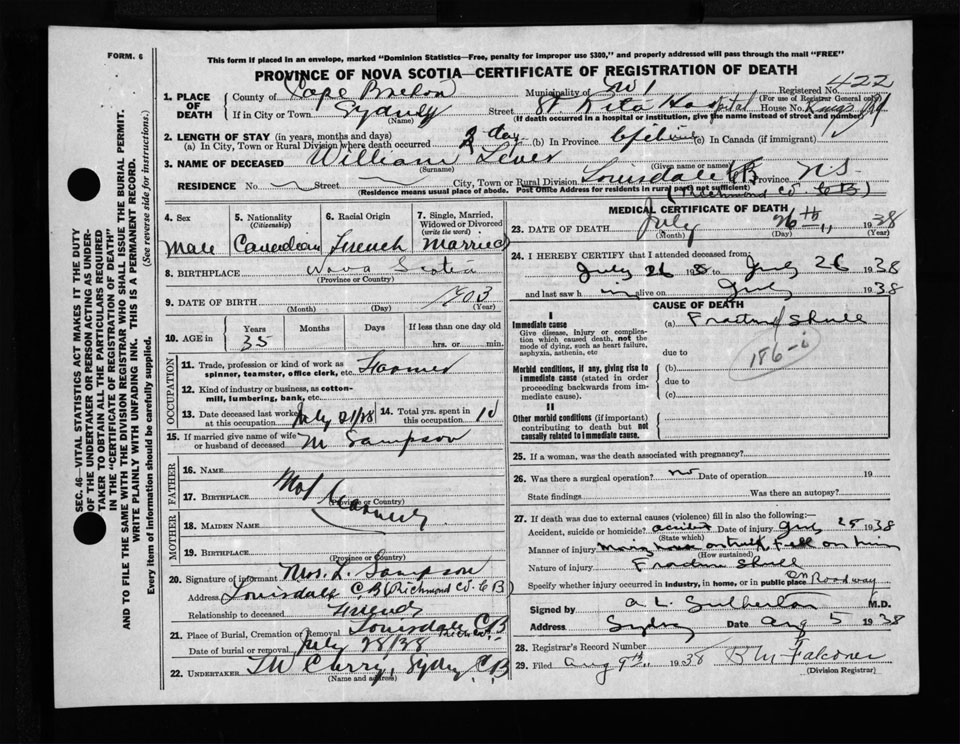 FORM. 6
This form if placed in an envelope, marked "Dominion Statistics—Free, penalty for improper use $300," and properly addressed will pass through the mail "FREE"
PROVINCE OF NOVA SCOTIA—CERTIFICATE OF REGISTRATION OF DEATH
Registered No. 422
(For use of Registrar General only)
1. PLACE OF DEATH
County of Cape Breton Municipality of
If in City or Town Sydney Street St Rita Hospital House No.
(Name) (If death occurred in a hospital or institution, give the name instead of street and number)
2. LENGTH OF STAY (in years, months and days)
(a) In City, Town or Rural Division where death occurred day (b) In Province (c) In Canada (if immigrant)
3. NAME OF DECEASED William Lever
(Surname) (Given name or names)
RESIDENCE No. Street City, Town or Rural Division Louisdale CB Province N.S.
(Residence means usual place of abode. Post Office Address for residents in rural part not sufficient) (Richmond Co. C B)
4. Sex
Male
5. Nationality (Citizenship)
Canadian
6. Racial Origin
French
7. Single, Married, Widowed or Divorced (write the word)
Married
8. BIRTHPLACE Nova Scotia
(Province or Country)
9. DATE OF BIRTH 1903
(Month) (Day) (Year)
10. AGE in Years Months Days If less than one day old
35 hrs. or min.
OCCUPATION
11. Trade, profession or kind of work as spinner, teamster, office clerk, etc.
12. Kind of industry or business, as cotton-mill, lumbering, bank, etc.
13. Date deceased last worked at this occupation July
14. Total yrs. spent in this occupation
15. If married give name of wife or husband of deceased M Sampson
FATHER
16. NAME
17. BIRTHPLACE
(Province or Country)
MOTHER
18. MAIDEN NAME
19. BIRTHPLACE
(Province or Country)
20. Signature of informant Mrs. L. Sampson
Address Louisdale C.B (Richmond Co. C B)
Relationship to deceased Friend
21. Place of Burial, Cremation or Removal Louisdale CB
Date of burial or removal July 28/38
22. UNDERTAKER Curry, Sydney C.B
(Name and address)
MEDICAL CERTIFICATE OF DEATH
23. DATE OF DEATH July 26th 1938
(Month) (Day) (Year)
24. I HEREBY CERTIFY that I attended deceased from:
July 26 193 to July 26 1938
and last saw him alive on July 1938
CAUSE OF DEATH
I
Immediate cause
Give disease, injury or complication which caused death, not the mode of dying, such as heart failure, asphyxia, asthenia, etc
(a) Fracture Skull
186-
due to
Morbid conditions, if any, giving rise to immediate cause (stated in order proceeding backwards from immediate cause).
(b)
due to
(c)
II
Other morbid conditions (if important) contributing to death but not causally related to immediate cause.
25. If a woman, was the death associated with pregnancy?
26. Was there a surgical operation? no Date of operation 19
State findings Was there an autopsy?
27. If death was due to external causes (violence) fill in also the following:—
Accident, suicide or homicide? accident Date of injury July 25 1938
(State which)
Manner of injury Moving house on truck, fell on him
(How sustained)
Nature of injury Fracture Skull
Specify whether injury occurred in industry, in home, or in public place on Roadway
Signed by M.D.
Address Sydney Date Aug 5 1938
28. Registrar's Record Number
29. Filed Aug 9th 1938 Falconer
(Division Registrar)
SEC. 46—VITAL STATISTICS ACT MAKES IT THE DUTY
OF THE UNDERTAKER OR PERSON ACTING AS UNDER-
TAKER TO OBTAIN ALL THE PARTICULARS REQUIRED
IN THE "CERTIFICATE OF REGISTRATION OF DEATH"
AND TO FILE THE SAME WITH THE DIVISION REGISTRAR WHO SHALL ISSUE THE BURIAL PERMIT.
WRITE PLAINLY WITH UNFADING INK. THIS IS A PERMANENT RECORD.
Every item of information should be carefully supplied. (See reverse side for instructions.)